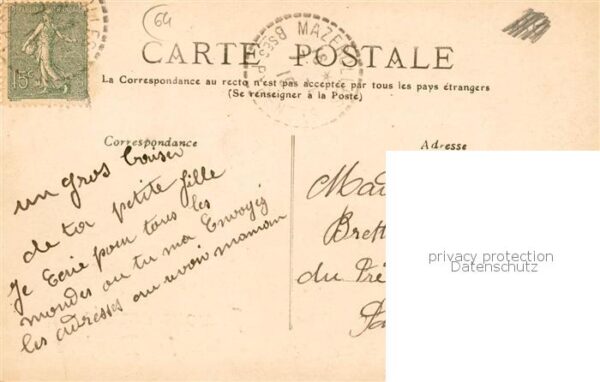 64
15c
MAZE
BSES P
CARTE POSTALE
La Correspondance au recto n'est pas acceptée par tous les pays étrangers
(Se renseigner à la Poste)
Correspondance
un gros baiser
de ta petite fille
Je Ecrie pour tous les
mondes ou tu ma Envoyez
les adresses au revoir maman
Adresse
Mad
Bret
du Pré
privacy protection
Datenschutz